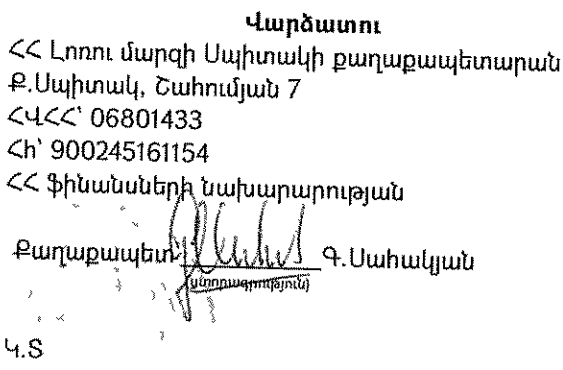 Վարձատու
ՀՀ Լոռու մարզի Սպիտակի քաղաքապետարան
Ք.Սպիտակ, Շահումյան 7
ՀՎՀՀ՝ 06801433
Հհ՝ 900245161154
ՀՀ ֆինանսների նախարարության
Քաղաքապետ՝ Գ.Սահակյան
(ստորագրություն)
Կ.Տ